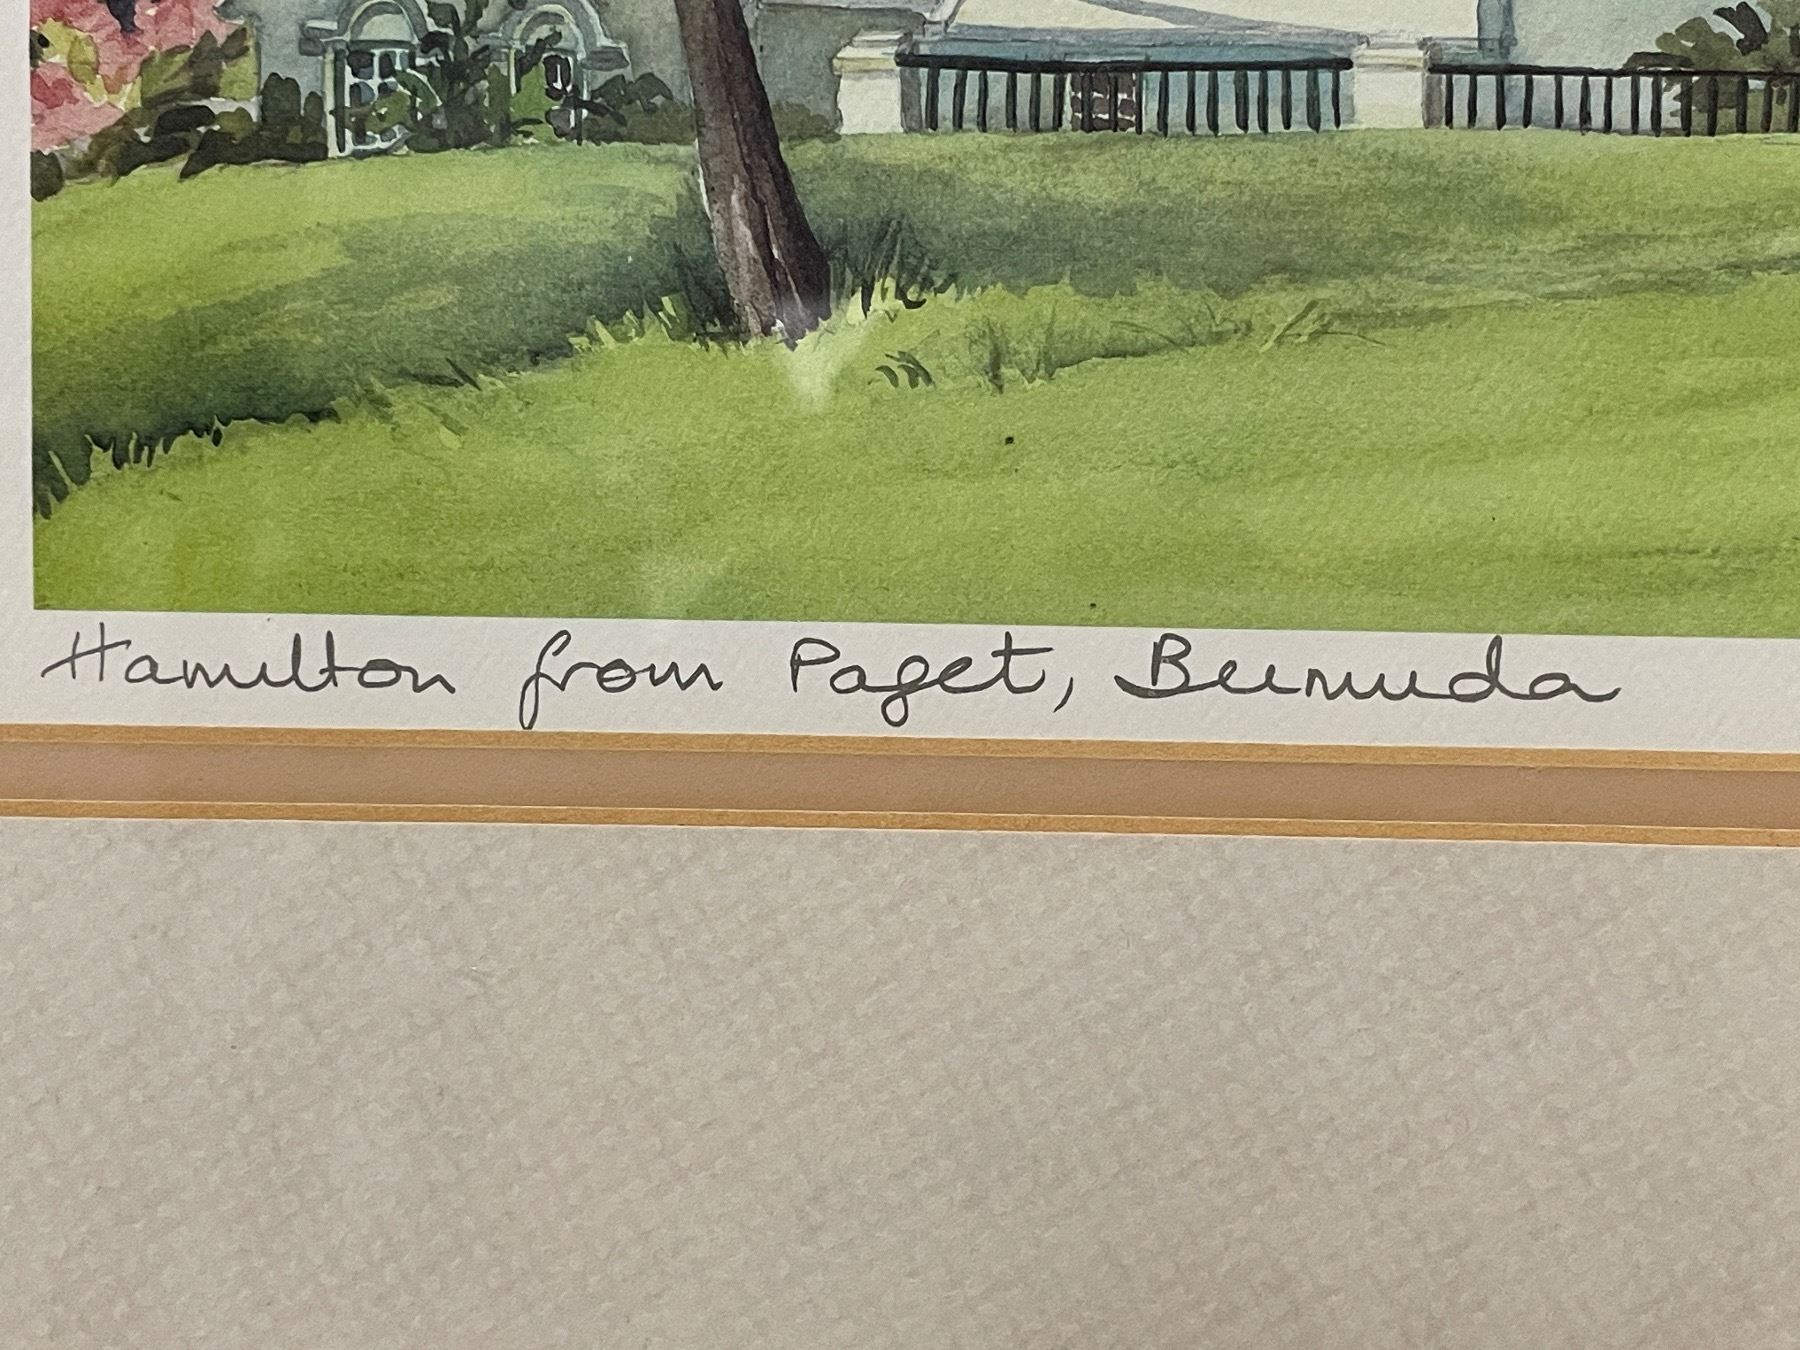 Hamilton from Paget, Bermuda